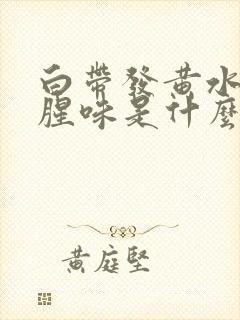 白帶發黃水
腥味是什麼
黃庭堅